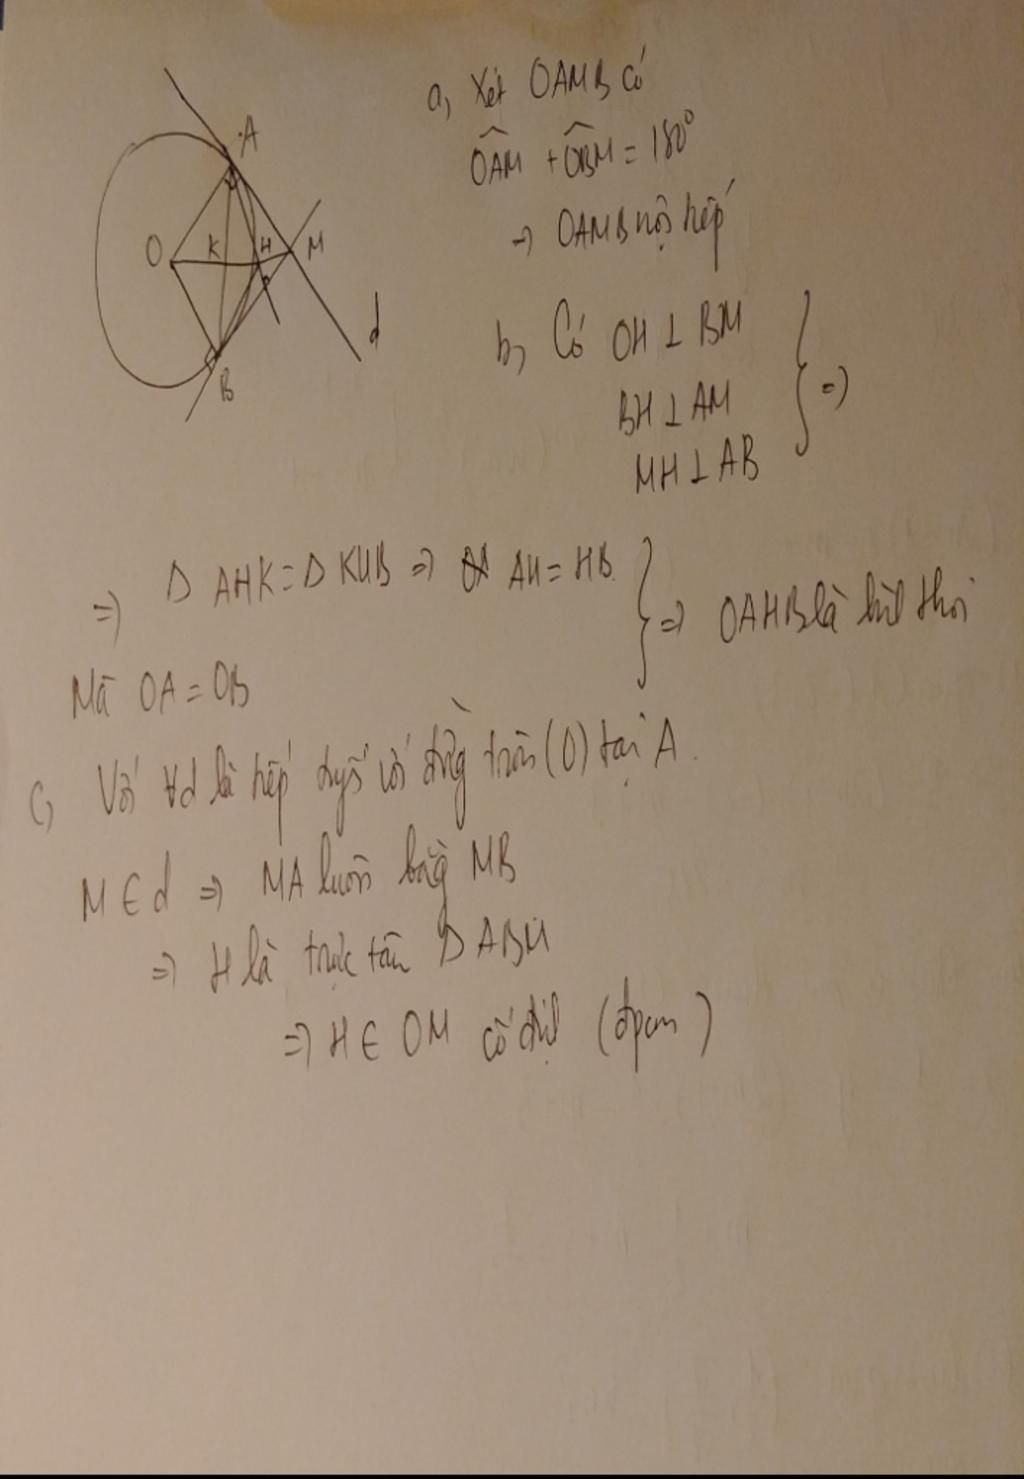 A
O K H M
B
d
a, Xét OAMB có
OAM + OBM = 180°
=> OAMB nội tiếp
b, Có OH ⊥ BM
BH ⊥ AM } =>
MH ⊥ AB
=> Δ AHK = Δ KHB => AH = HB
Mà OA = OB } => OAHB là hình thoi
c, Với ∀d là tiếp tuyến với đường tròn (O) tại A.
M ∈ d => MA luôn bằng MB
=> H là trực tâm Δ ABM
=> H ∈ OM cố định (đpcm)